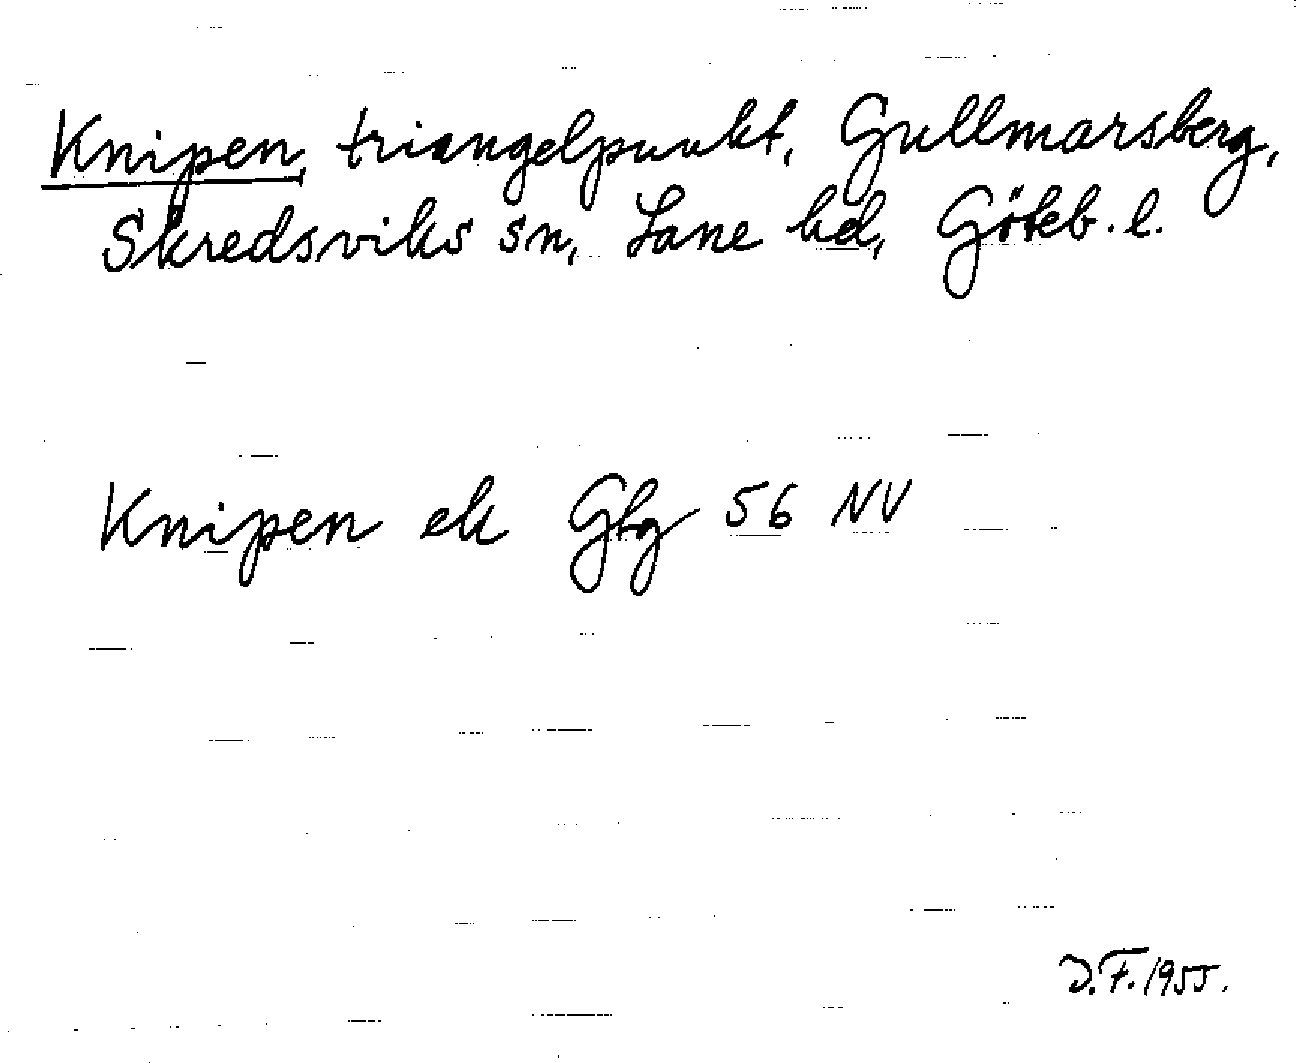 Knipen, triangelpunkt, Gullmarsberg,
Skredsviks sn, Lane hd, Göteb. l.
Knipen ek Gbg 56 NV
D.F. 1955.